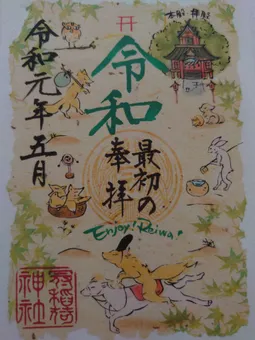 本殿 拝殿
令和
最初の
奉拝
令和元年五月
Enjoy! Reiwa!
神社